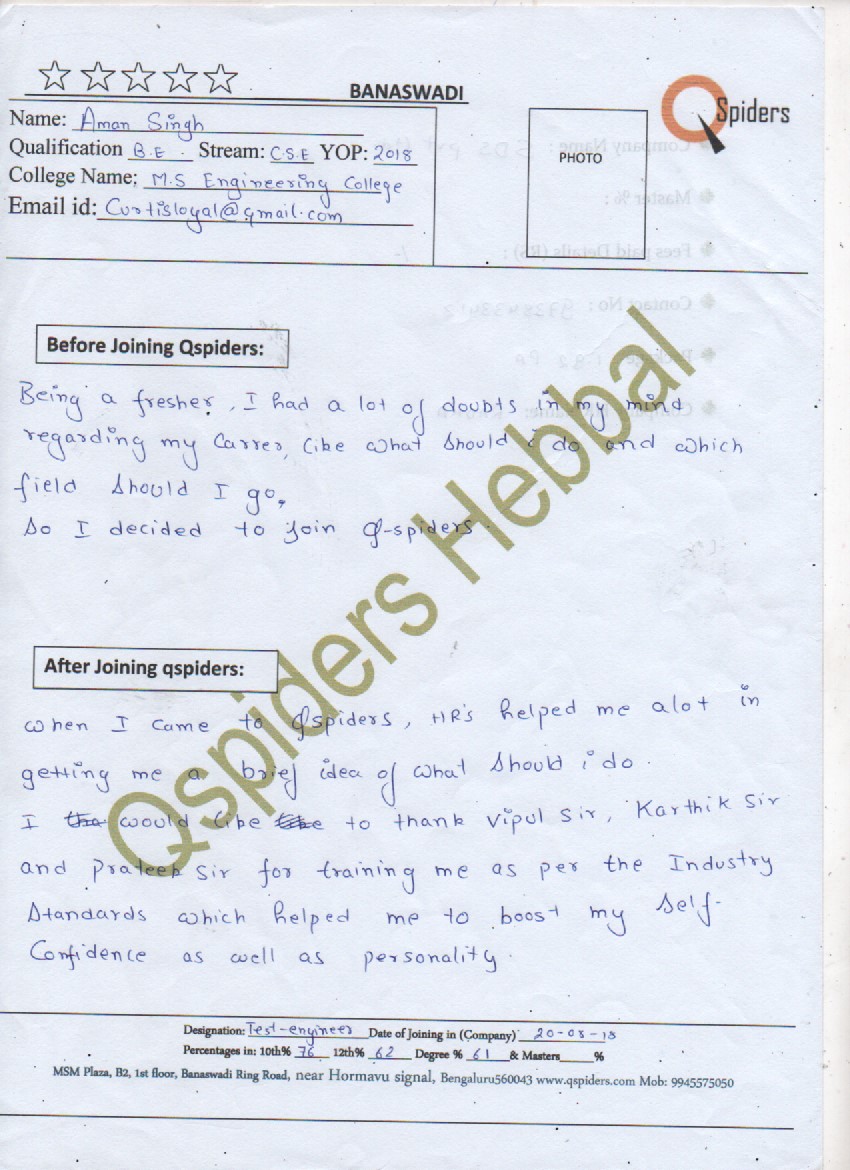 BANASWADI
QSpiders
Name: Aman Singh
Qualification B.E. Stream: C.S.E YOP: 2018
College Name: M.S Engineering College
Email id: Curtisloyal@gmail.com
PHOTO
Before Joining Qspiders:
Being a fresher, I had a lot of doubts in my mind
regarding my Carrer, like what should i do and which
field should I go,
So I decided to join Q-spiders.
After Joining qspiders:
when I came to Qspiders, HR's helped me alot in
getting me a brief idea of what should i do.
I would like to thank Vipul Sir, Karthik Sir
and Prateek Sir for training me as per the Industry
Standards which helped me to boost my Self-
Confidence as well as personality.
Qspiders Hebbal
Designation: Test-engineer Date of Joining in (Company) 20-08-18
Percentages in: 10th% 76 12th% 62 Degree % 61 & Masters_____%
MSM Plaza, B2, 1st floor, Banaswadi Ring Road, near Hormavu signal, Bengaluru560043 www.qspiders.com Mob: 9945575050